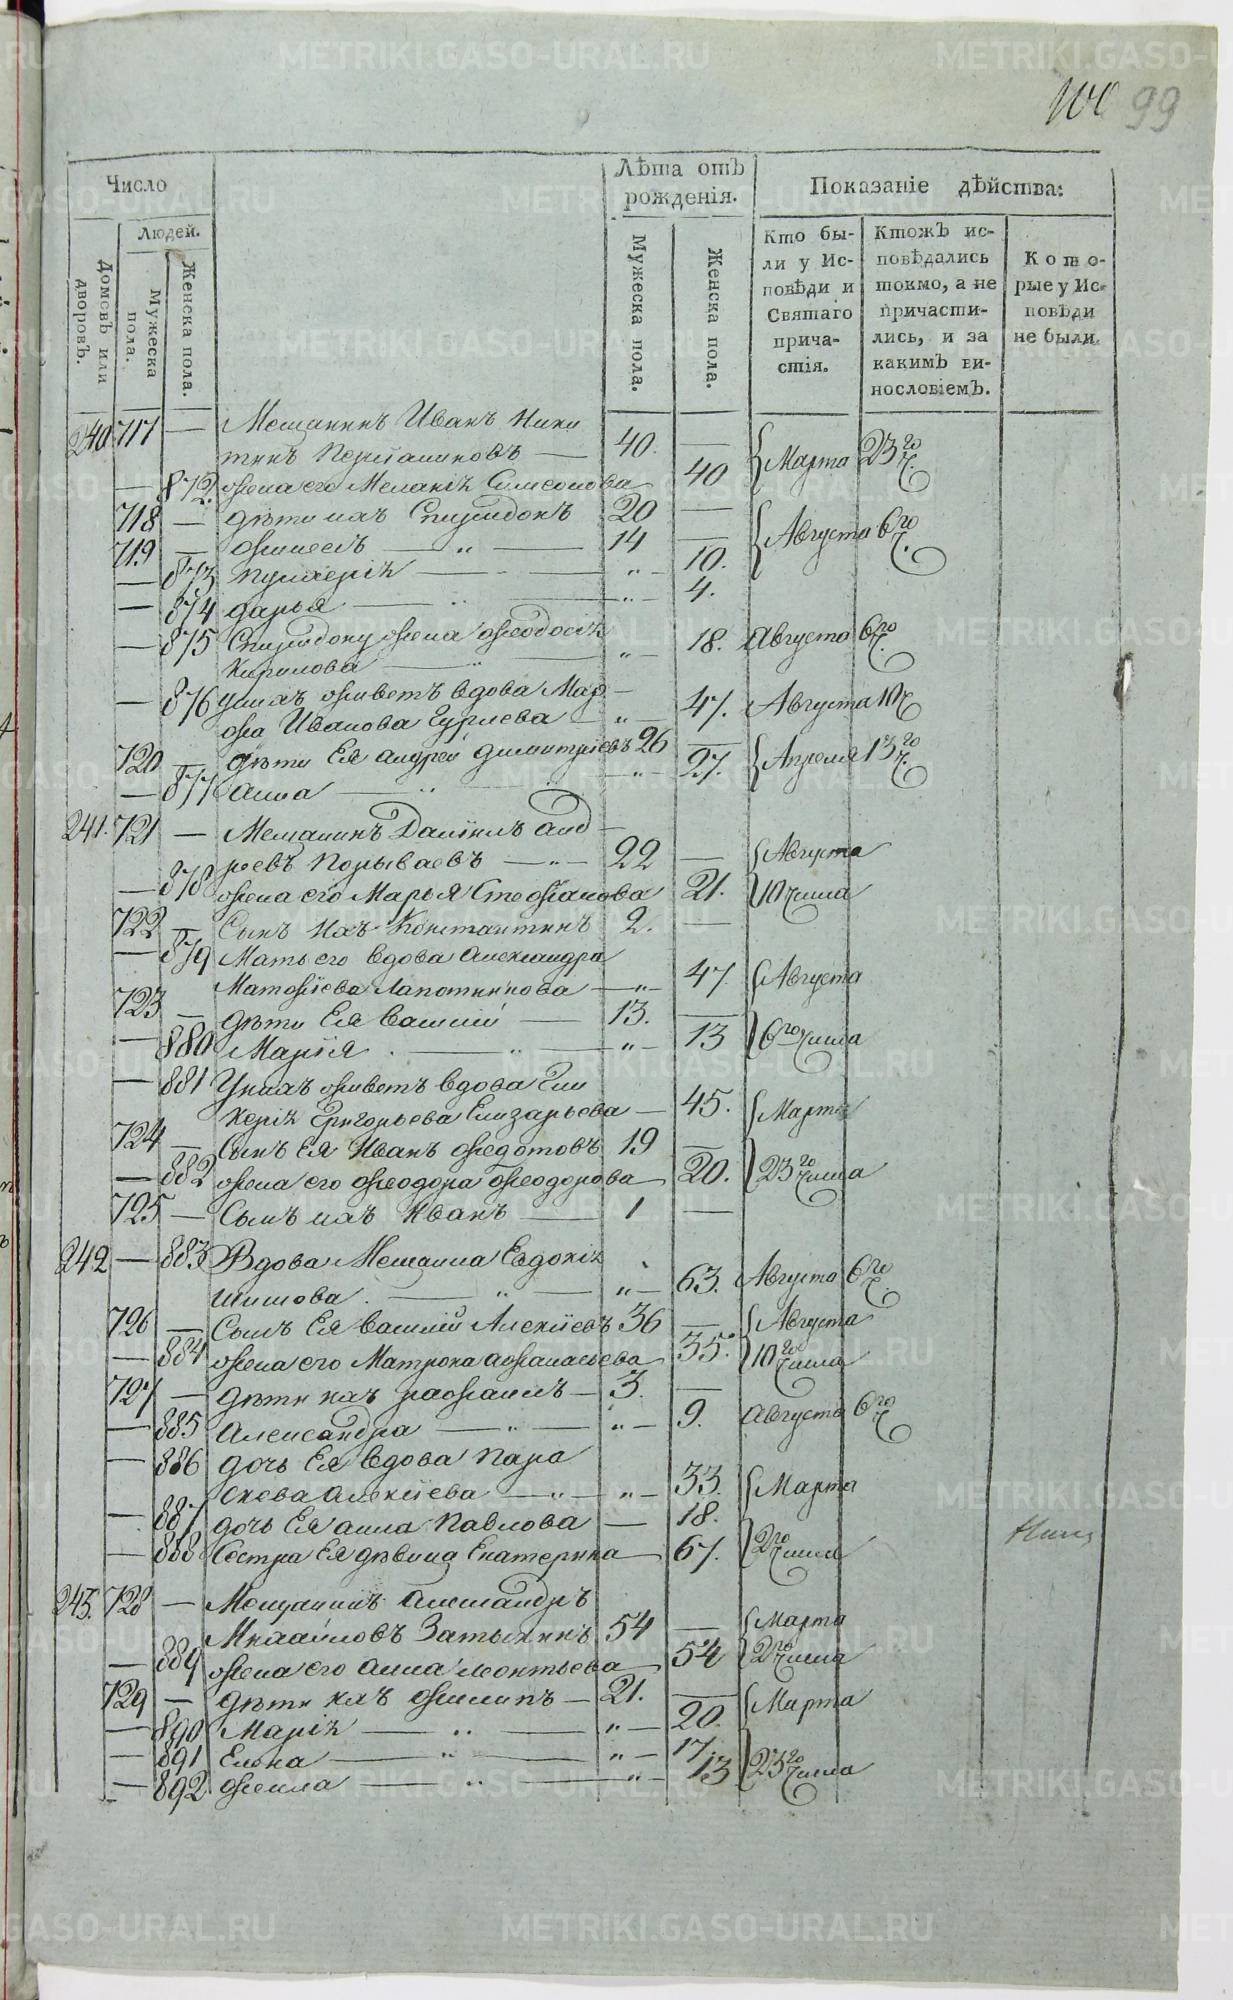 100 99
Число
Лѣта отъ рожденія.
Показаніе дѣйства:
Людей.
Домовъ или дворовъ.
Мужеска пола.
Женска пола.
Мужеска пола.
Женска пола.
Кто были у Исповѣди и Святаго причастія.
Ктожъ исповѣдались токмо, а не причастились, и за какимъ винословіемъ.
Которые у Исповѣди не были.
240 717 — Мещанинъ Иванъ Ники
тинъ — 40. — Марта 23го ч.
— 872. жена его Меланія Симеонова 40
718 — дѣти ихъ Спиридонъ 20 — Августа 6го ч.
719 — 14 —
— 873 Пулхерія — „ — 10.
— 874 дарья — „ — 4.
— 875 Спиридону жена Феодосія
Кирилова — „ — 18. Августа 6го ч.
— 876 у нихъ живетъ вдова Мар
фа Иванова Гурлева — „ — 47. Августа 10 ч
720 — дѣти Ея андрей димитріевъ 26 — Апреля 13го ч.
— 877 анна — „ — 27.
241. 721 — Мещанинъ Даніилъ анд
реевъ Порываевъ — „ — 22 — Августа
— 878 жена его Марья Стефанова 21. 10 числа
722 — Сынъ ихъ Константинъ 2. —
— 879 Мать его вдова александра
Матфіева Лапотникова — „ — 47 Августа
723 — дѣти Ея василій — 13. —
— 880 Марія — „ — 13 6го числа
— 881 У нихъ живетъ вдова Гли
керія Григорьева Елизарьева — 45. Марта
724 — Сынъ Ея Иванъ Федотовъ 19 —
— 882 жена его феодора феодорова — 20. 23го числа
725 — Сынъ ихъ Иванъ — 1 —
242 — 883 Вдова Мещанка Евдокія
Шишова — „ — 63. Августа 6го ч
726 — Сынъ Ея василій Алексіевъ 36 — Августа
— 884 жена его Матрона афанасьева 35. 10го числа
727 — дѣти ихъ рафаилъ — 3. —
— 885 Александра — „ — 9. августа 6го ч
— 886 дочь Ея вдова Пара
скева алексіева — „ — 33. Марта
— 887 дочь Ея анна Павлова — 18.
— 888 Сестра Ея дѣвица Екатерина — 67. 2го числа
243. 728 — Мещанинъ александръ
Михайловъ Затыкинъ 54 — Марта
— 889 жена его анна леонтьева — 54 2го числа
729 — дѣти ихъ филипъ — 21. — Марта
— 890 Марія — „ — 20.
— 891 Елена — „ — 17 23го числа
— 892 — „ — 13
METRIKI.GASO-URAL.RU